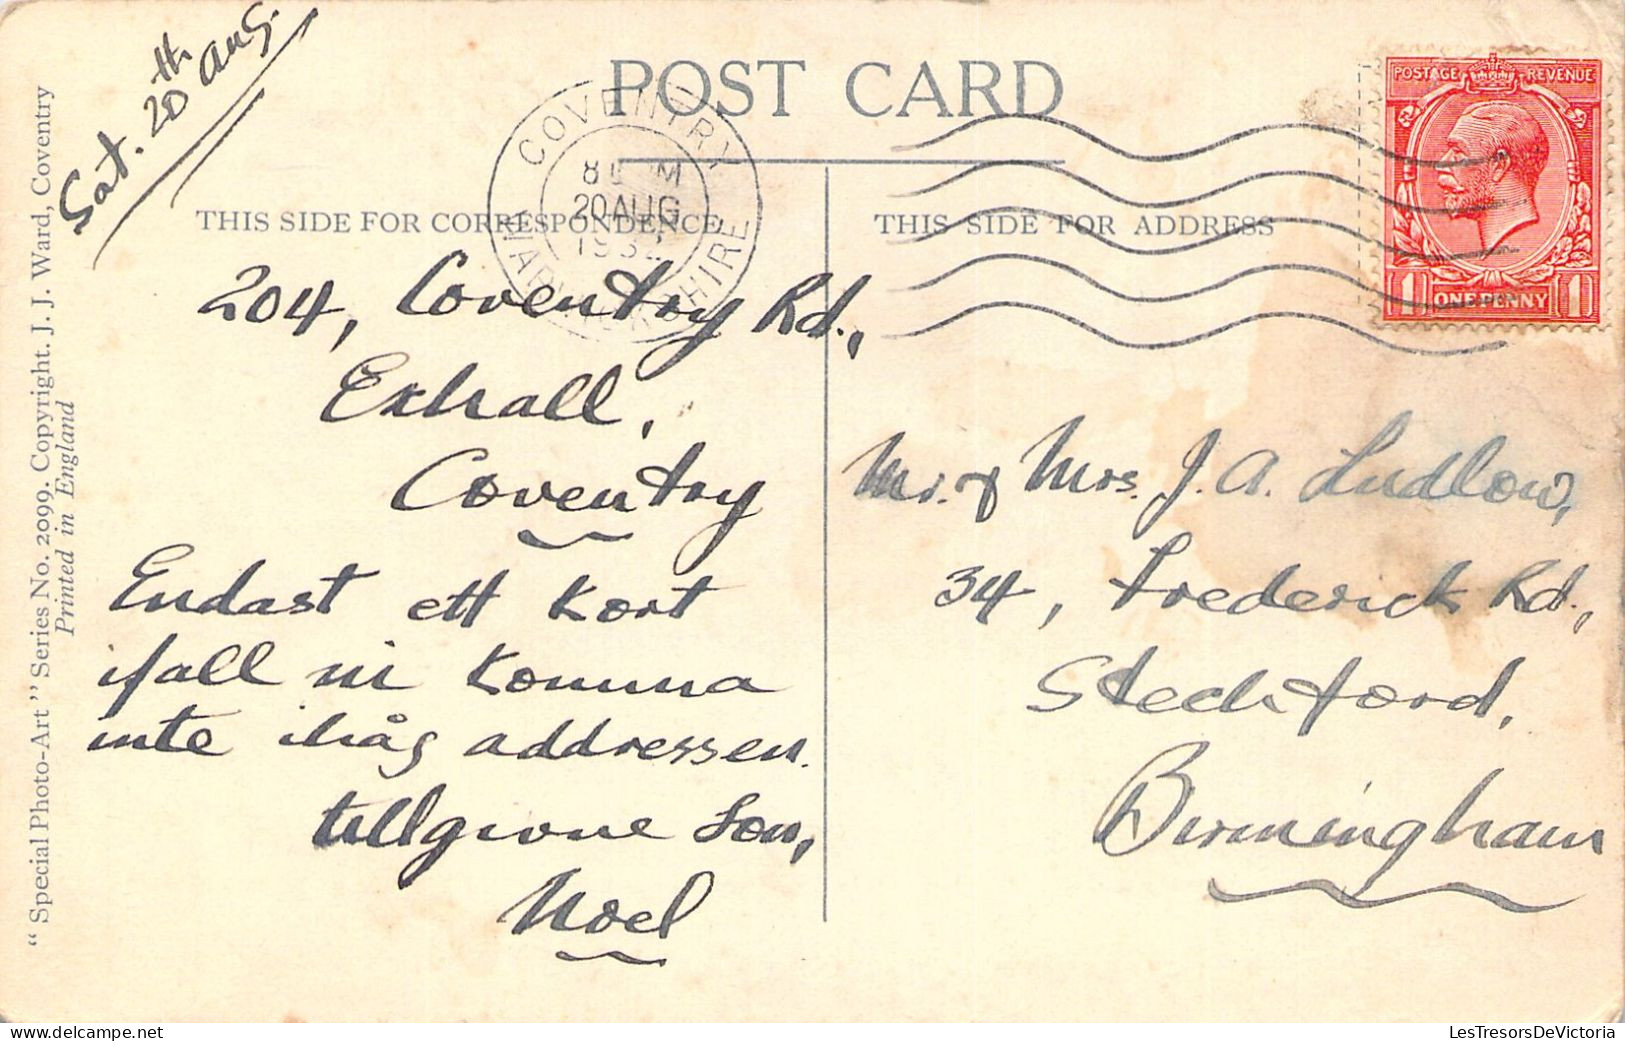 Sat. 20th Aug.
POST CARD
COVENTRY
WARWICKSHIRE
20 AUG
1932
POSTAGE REVENUE
1 ONE PENNY 1
THIS SIDE FOR CORRESPONDENCE
THIS SIDE FOR ADDRESS
204, Coventry Rd.,
Exhall,
Coventry
Endast ett kort
ifall ni komma
inte ihåg addressen.
tillgivne Son,
Noel
Mr. & Mrs. J. A. Ludlow,
34, Frederick Rd.,
Stechford,
Birmingham
"Special Photo-Art" Series No. 2099. Copyright. J. J. Ward, Coventry
Printed in England
LesTresorsDeVictoria